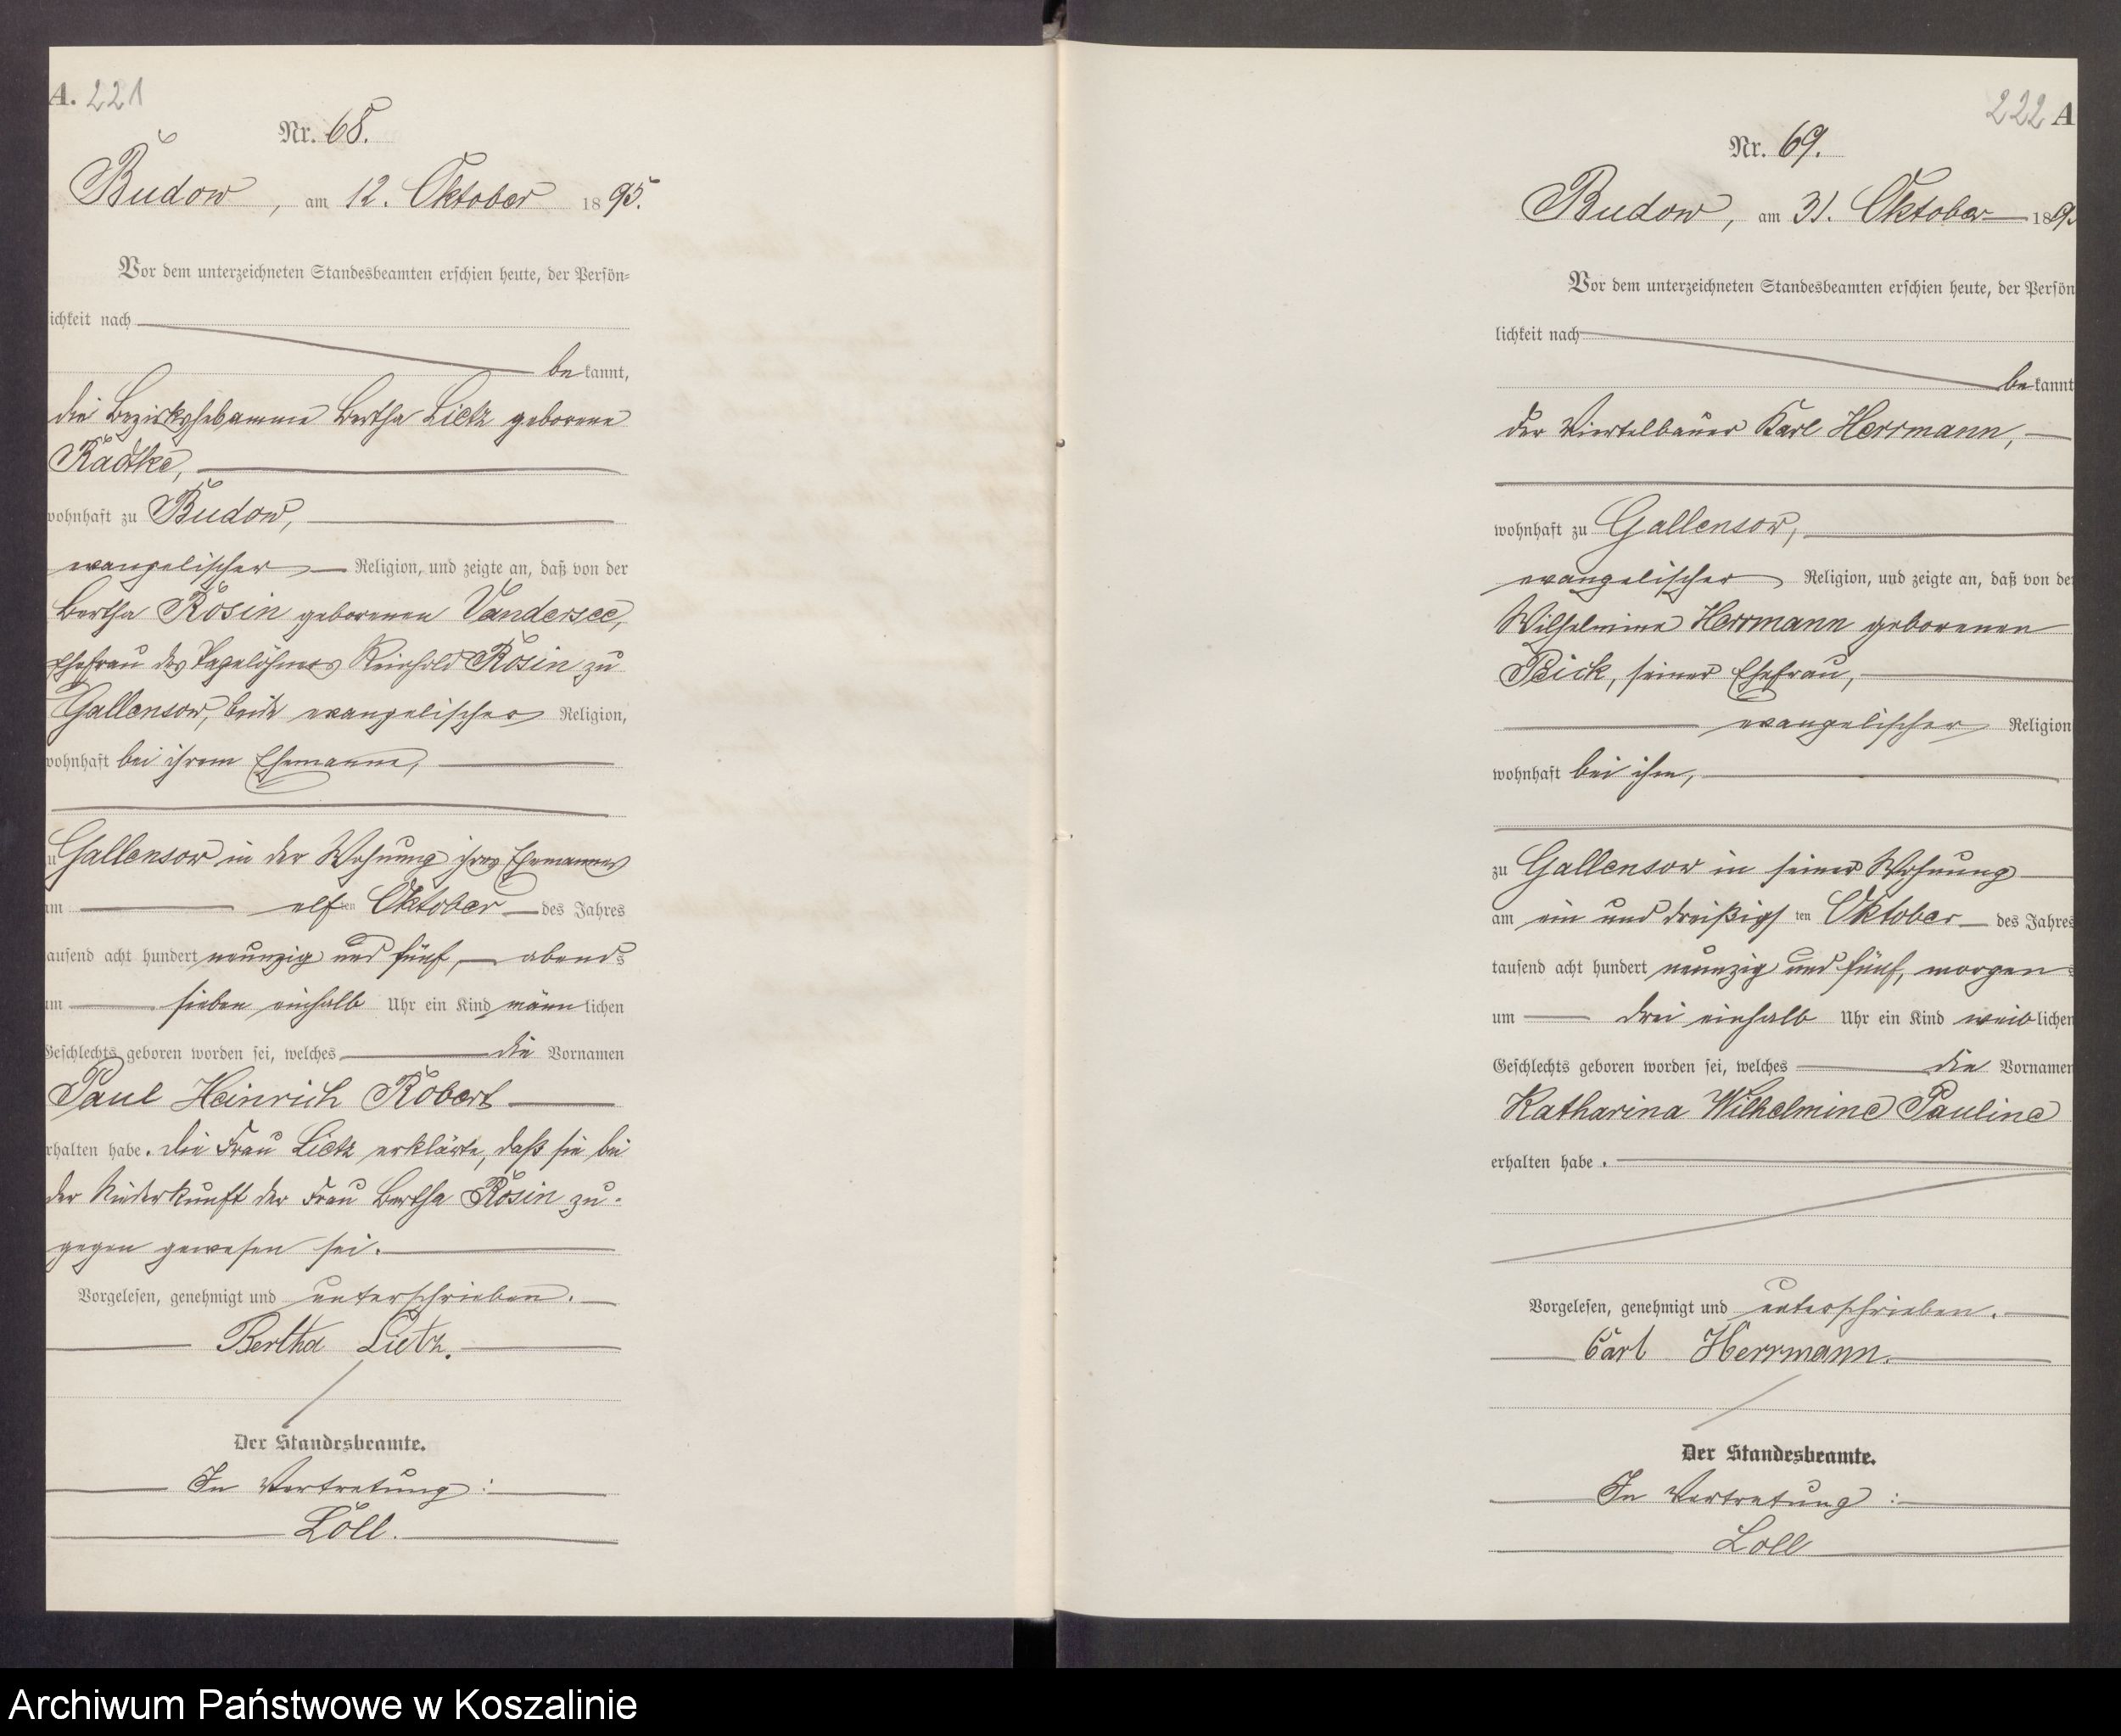 A. 221
Nr. 68.
Budow, am 12. Oktober 1895.
Vor dem unterzeichneten Standesbeamten erschien heute, der Persön-
ichkeit nach
be kannt,
die Bezirkshebamme Bertha Lietz geborene
Radtke,
wohnhaft zu Budow,
evangelischer Religion, und zeigte an, daß von der
Bertha Rosin geborenen Vandersee,
Ehefrau des Tagelöhners Reinhold Rosin zu
Gallensow, beide evangelischer Religion,
wohnhaft bei ihrem Ehemanne,
u Gallensow in der Wohnung ihres Ehemannes
am elf ten Oktober des Jahres
tausend acht hundert neunzig und fünf, abends
um sieben einhalb Uhr ein Kind männ lichen
Geschlechts geboren worden sei, welches die Vornamen
Paul Heinrich Robert
rhalten habe. Die Frau Lietz erklärte, daß sie bei
der Niederkunft der Frau Bertha Rosin zu-
gegen gewesen sei.
Vorgelesen, genehmigt und unterschrieben.
Bertha Lietz.
Der Standesbeamte.
In Vertretung:
Loll.
222 A
Nr. 69.
Budow, am 31. Oktober 189
Vor dem unterzeichneten Standesbeamten erschien heute, der Persön
lichkeit nach
be kannt
der Viertelbauer Karl Herrmann,
wohnhaft zu Gallensow,
evangelischer Religion, und zeigte an, daß von de
Wilhelmine Herrmann geborenen
Pick, seiner Ehefrau,
evangelischer Religion
wohnhaft bei ihm,
zu Gallensow in seiner Wohnung
am ein und dreißigs ten Oktober des Jahres
tausend acht hundert neunzig und fünf, morgens
um drei einhalb Uhr ein Kind weib lichen
Geschlechts geboren worden sei, welches die Vornamen
Katharina Wilhelmine Pauline
erhalten habe.
Vorgelesen, genehmigt und unterschrieben.
Carl Herrmann.
Der Standesbeamte.
In Vertretung:
Loll
Archiwum Państwowe w Koszalinie